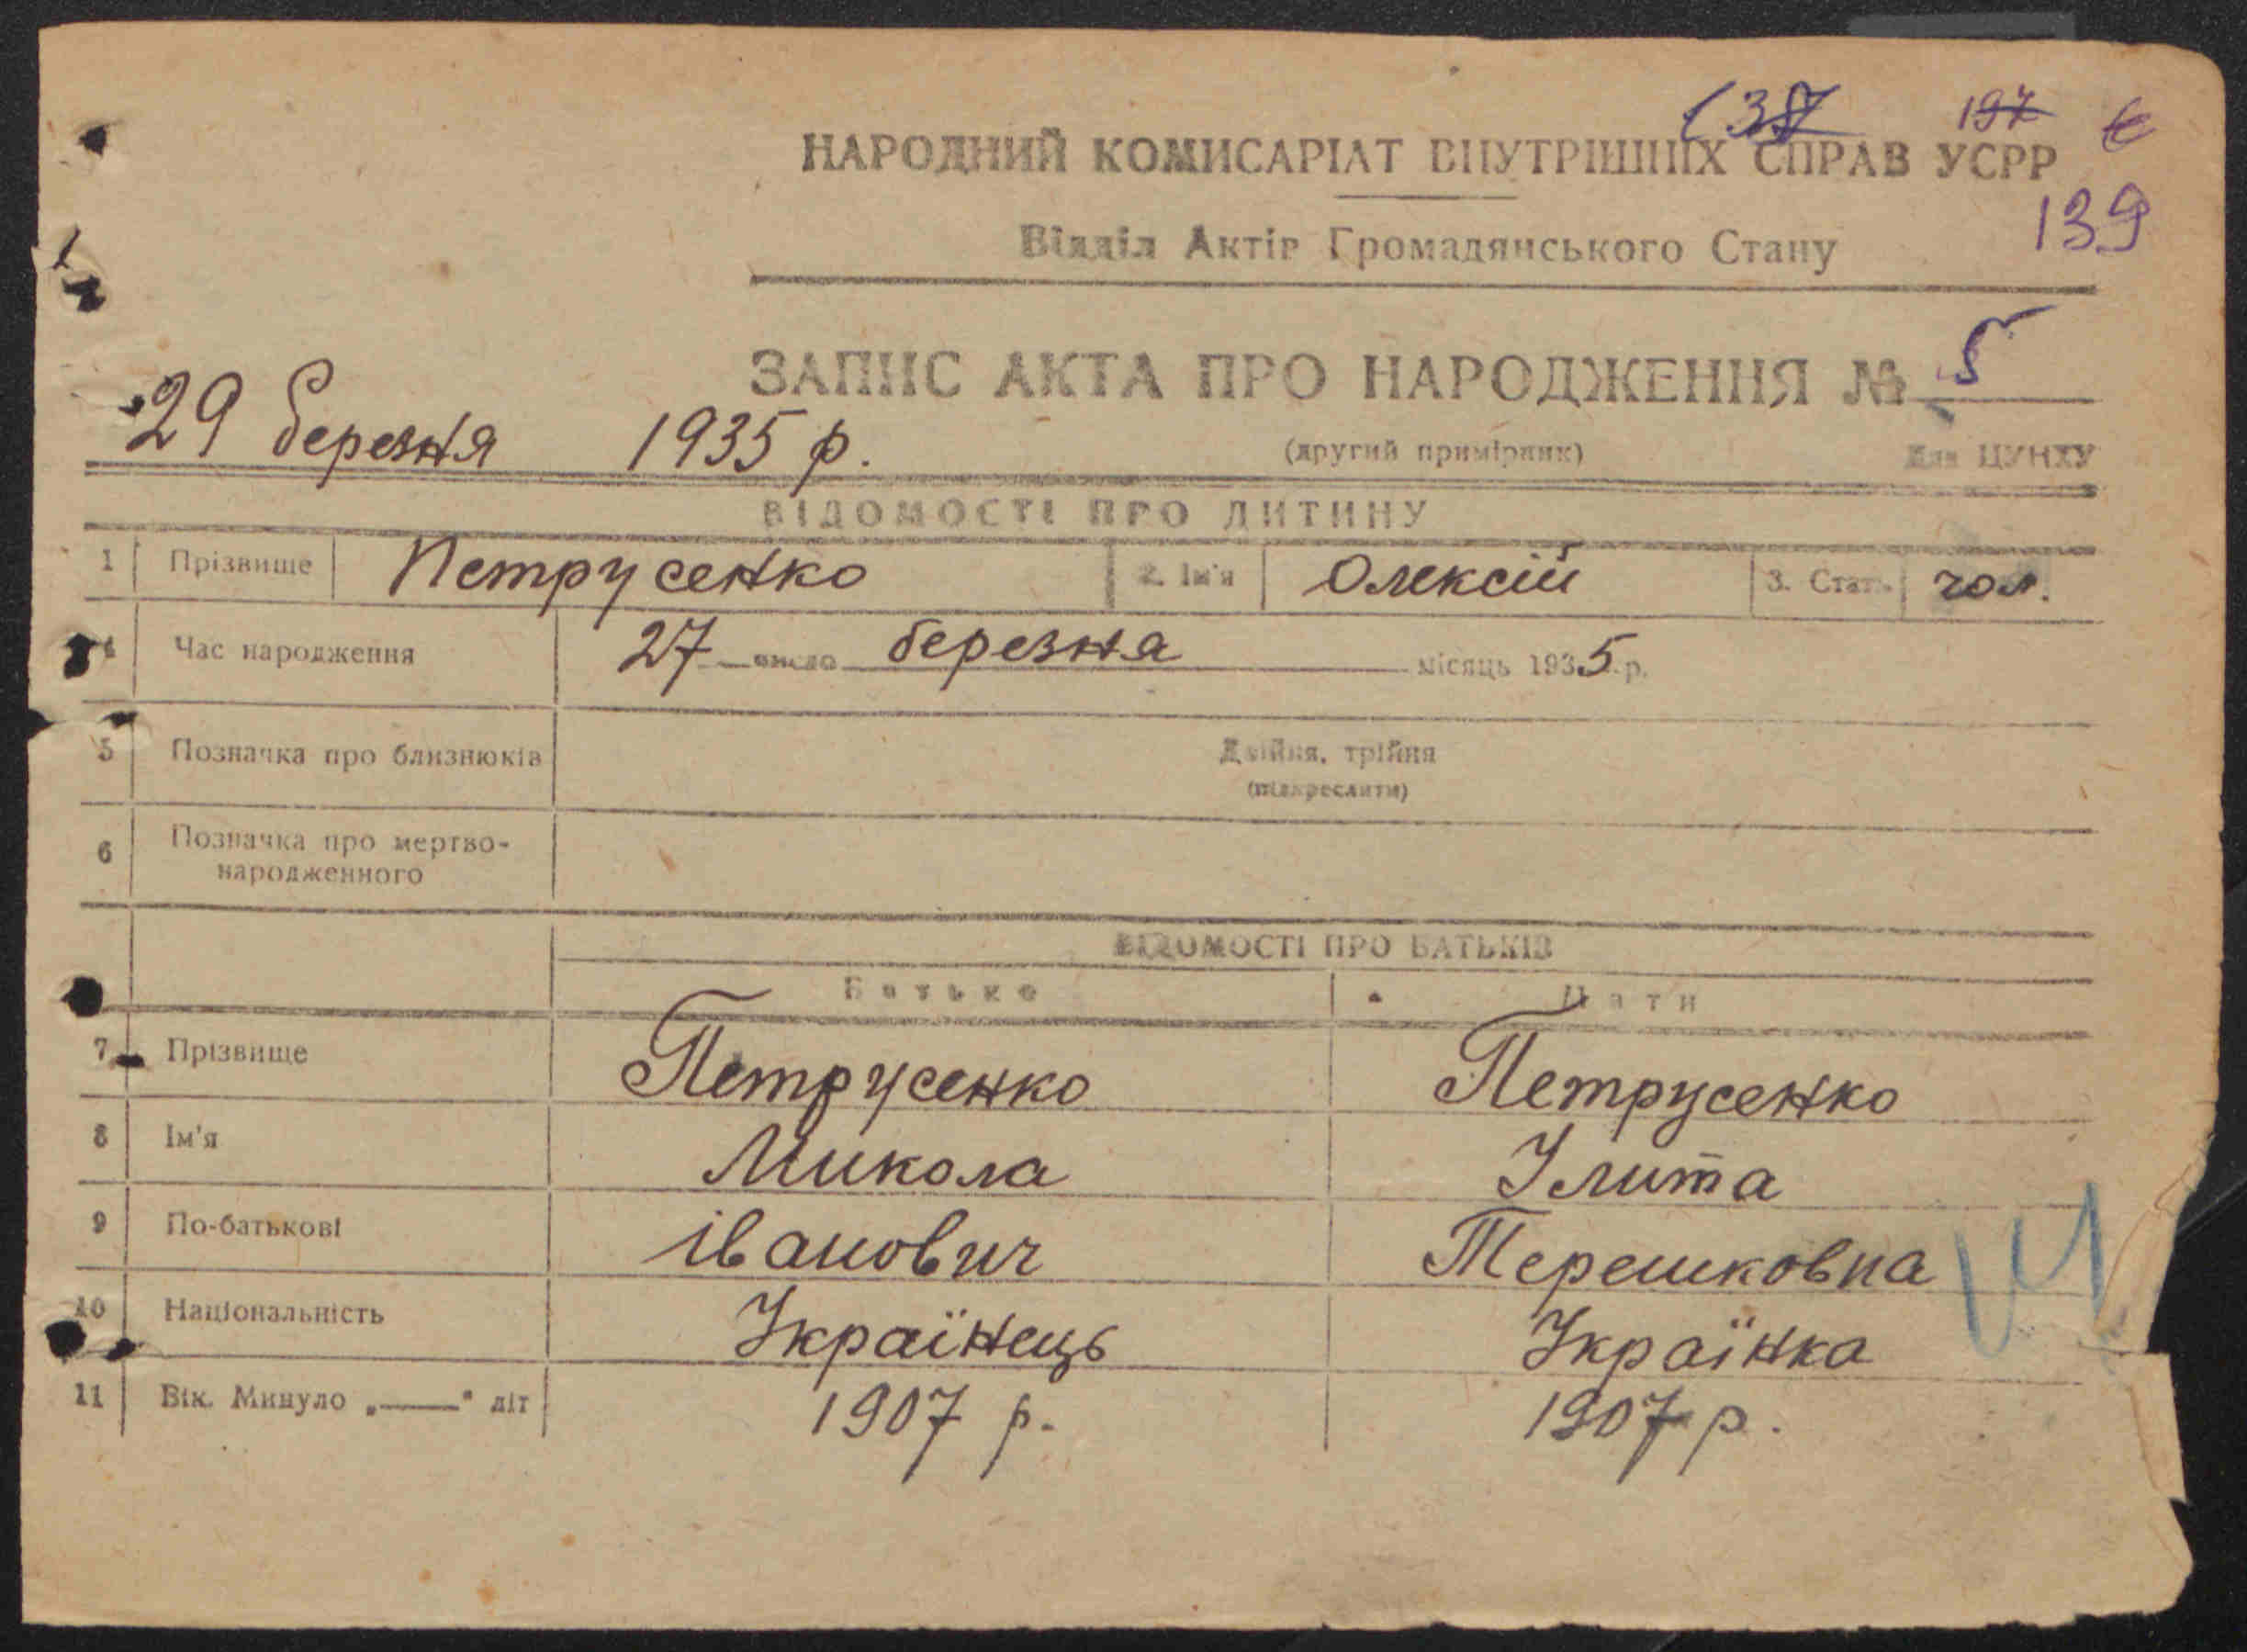 138 197
НАРОДНИЙ КОМИСАРІАТ ВНУТРІШНІХ СПРАВ УСРР
139
Відділ Актів Громадянського Стану
ЗАПИС АКТА ПРО НАРОДЖЕННЯ № 5
29 березня 1935 р.
(другий примірник) Для ЦУНХУ
ВІДОМОСТІ ПРО ДИТИНУ
1 Прізвище Петрусенко 2. Ім'я Олексій 3. Стать чол.
4 Час народження 27 число березня місяць 1935 р.
5 Позначка про близнюків Двійня, трійня
(підкреслити)
6 Позначка про мертво-
народженного
ВІДОМОСТІ ПРО БАТЬКІВ
Батько Мати
7 Прізвище Петрусенко Петрусенко
8 Ім'я Микола Улита
9 По-батькові Іванович Терешковна
10 Національність Українець Українка
11 Вік. Минуло „——" літ 1907 р. 1907 р.